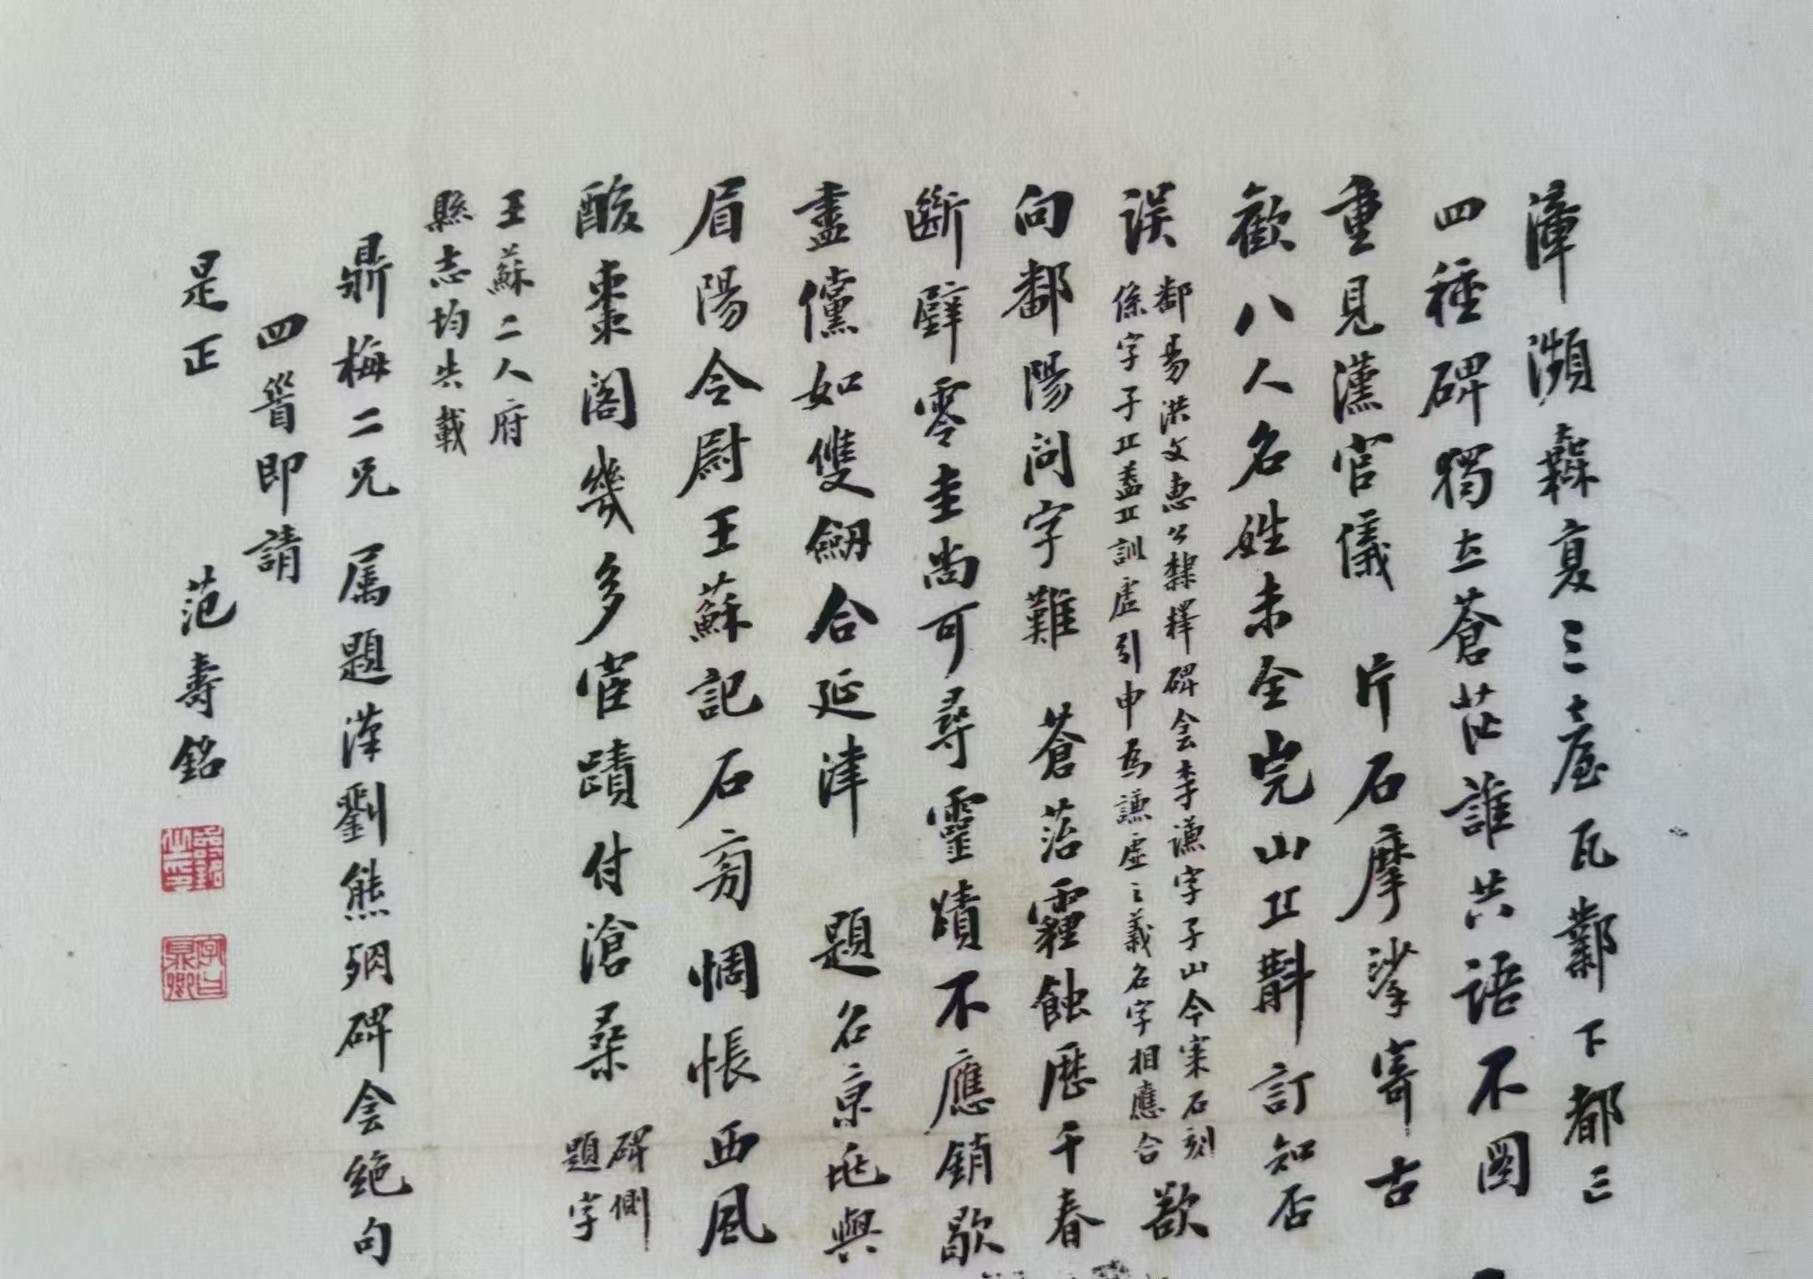 漳瀕夐三臺瓦鄴下都三
四種碑獨立蒼茫誰共語不圖
重見漢官儀 片石摩挲寄古
歡八人名姓未全完山丘斠訂知否
誤
鄱昜洪文惠公隸釋碑侌李謙字子山今案石刻
係字子丘蓋丘訓虛引申為謙虛之義名字相應合
欲
向鄱陽問字難 蒼菭霾蝕歷千春
斷璧零圭尚可尋靈蹟不應銷歇
盡儻如雙劒合延津 題名京兆與
眉陽令尉王蘇記石旁惆悵西風
酸棗閣幾多宦蹟付滄桑
碑側
題字
王蘇二人府
縣志均失載
鼎梅二兄 属題漢劉熊殘碑侌絕句
四首即請
是正 范壽銘
壽銘之印
字曰鼎卿